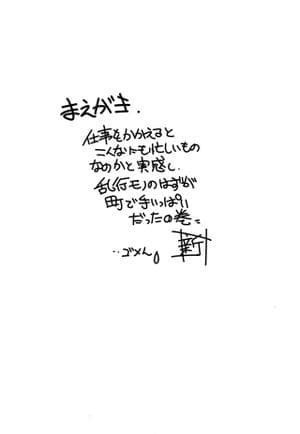 まえがき.
仕事をかかえると
こんなにも忙しいもの
なのかと実感し、
乱行モノのはずが
町で手いっぱい
だったの巻。
…ゴメん。
新